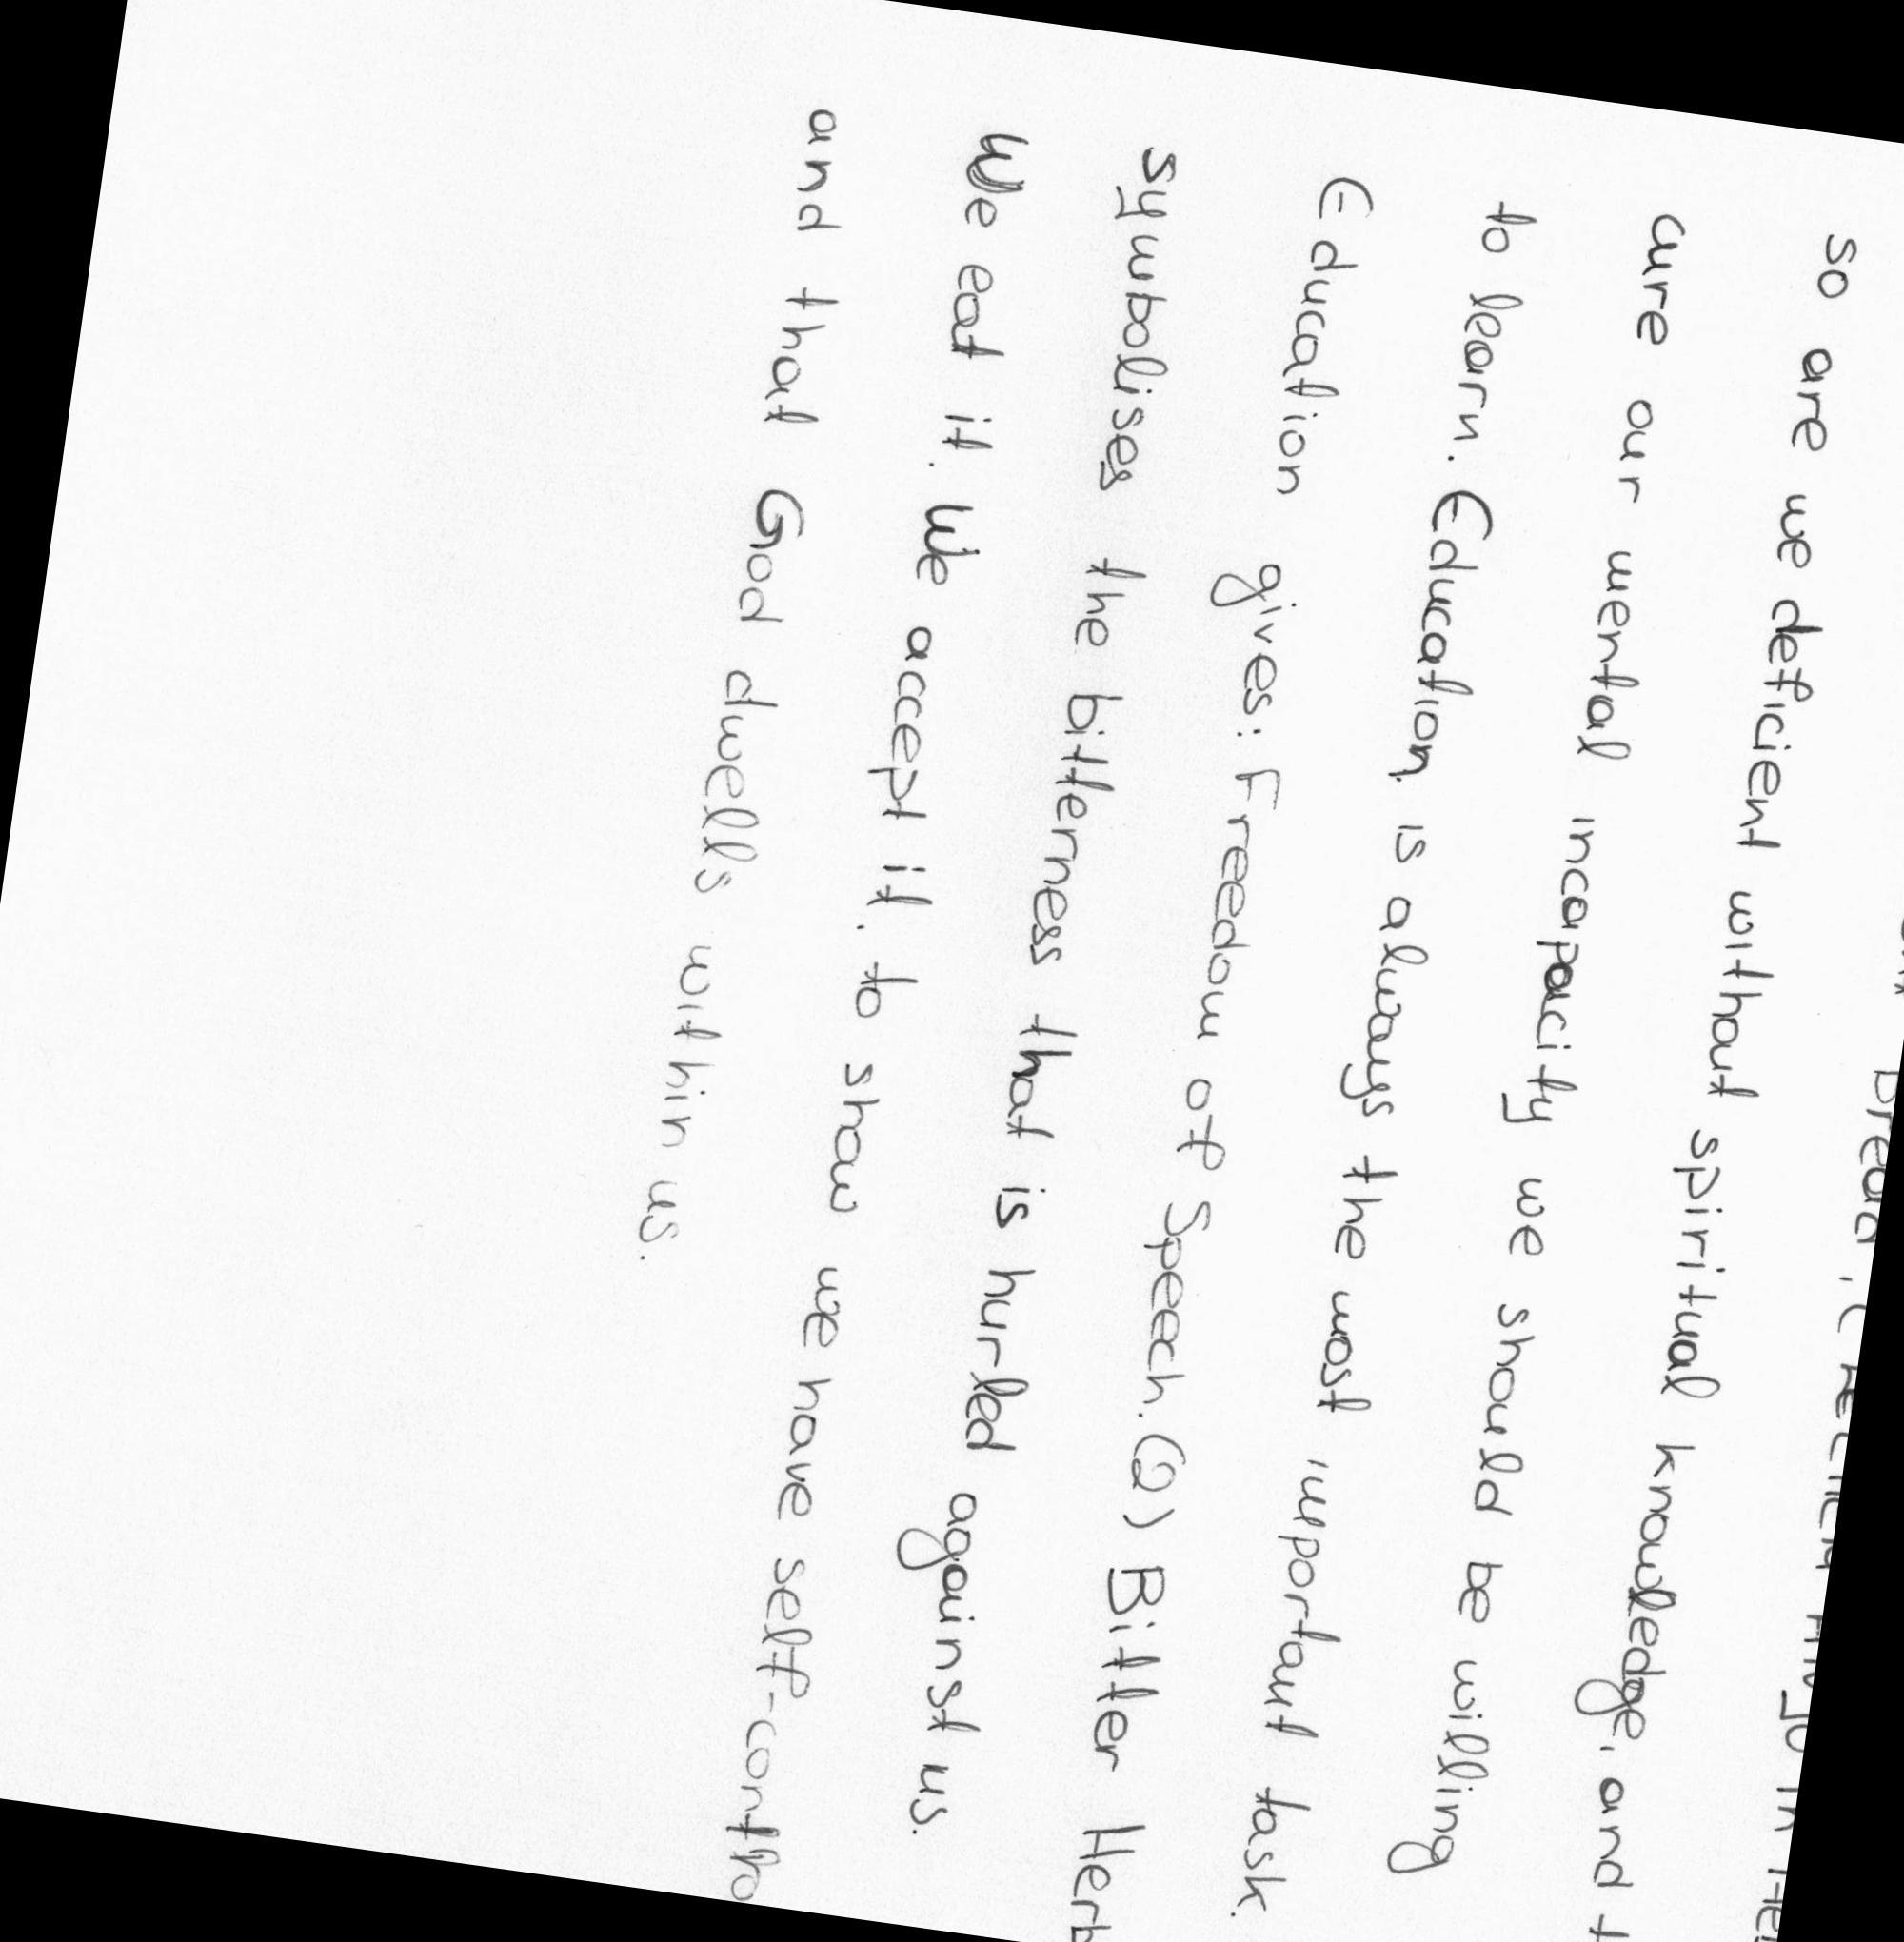 so are we deficient without spiritual knowledge, and
cure our mental incapacity we should be willing
to learn. Education, is always the most important task.
Education gives: Freedom of Speech. (2) Bitter Herb
symbolises the bitterness that is hurled against us.
We eat it. We accept it. to show we have self-contro
and that God dwells within us.